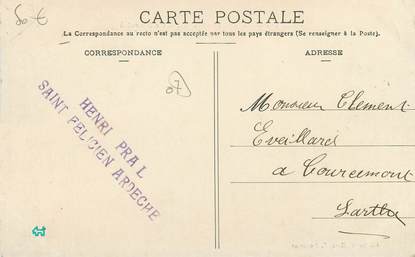 80 €
CARTE POSTALE
La Correspondance au recto n'est pas acceptée par tous les pays étrangers (Se renseigner à la Poste).
CORRESPONDANCE
ADRESSE
07
HENRI PRAL
SAINT FELICIEN ARDECHE
Monsieur Clement
Eveillard
a Courcemont
Sarthe